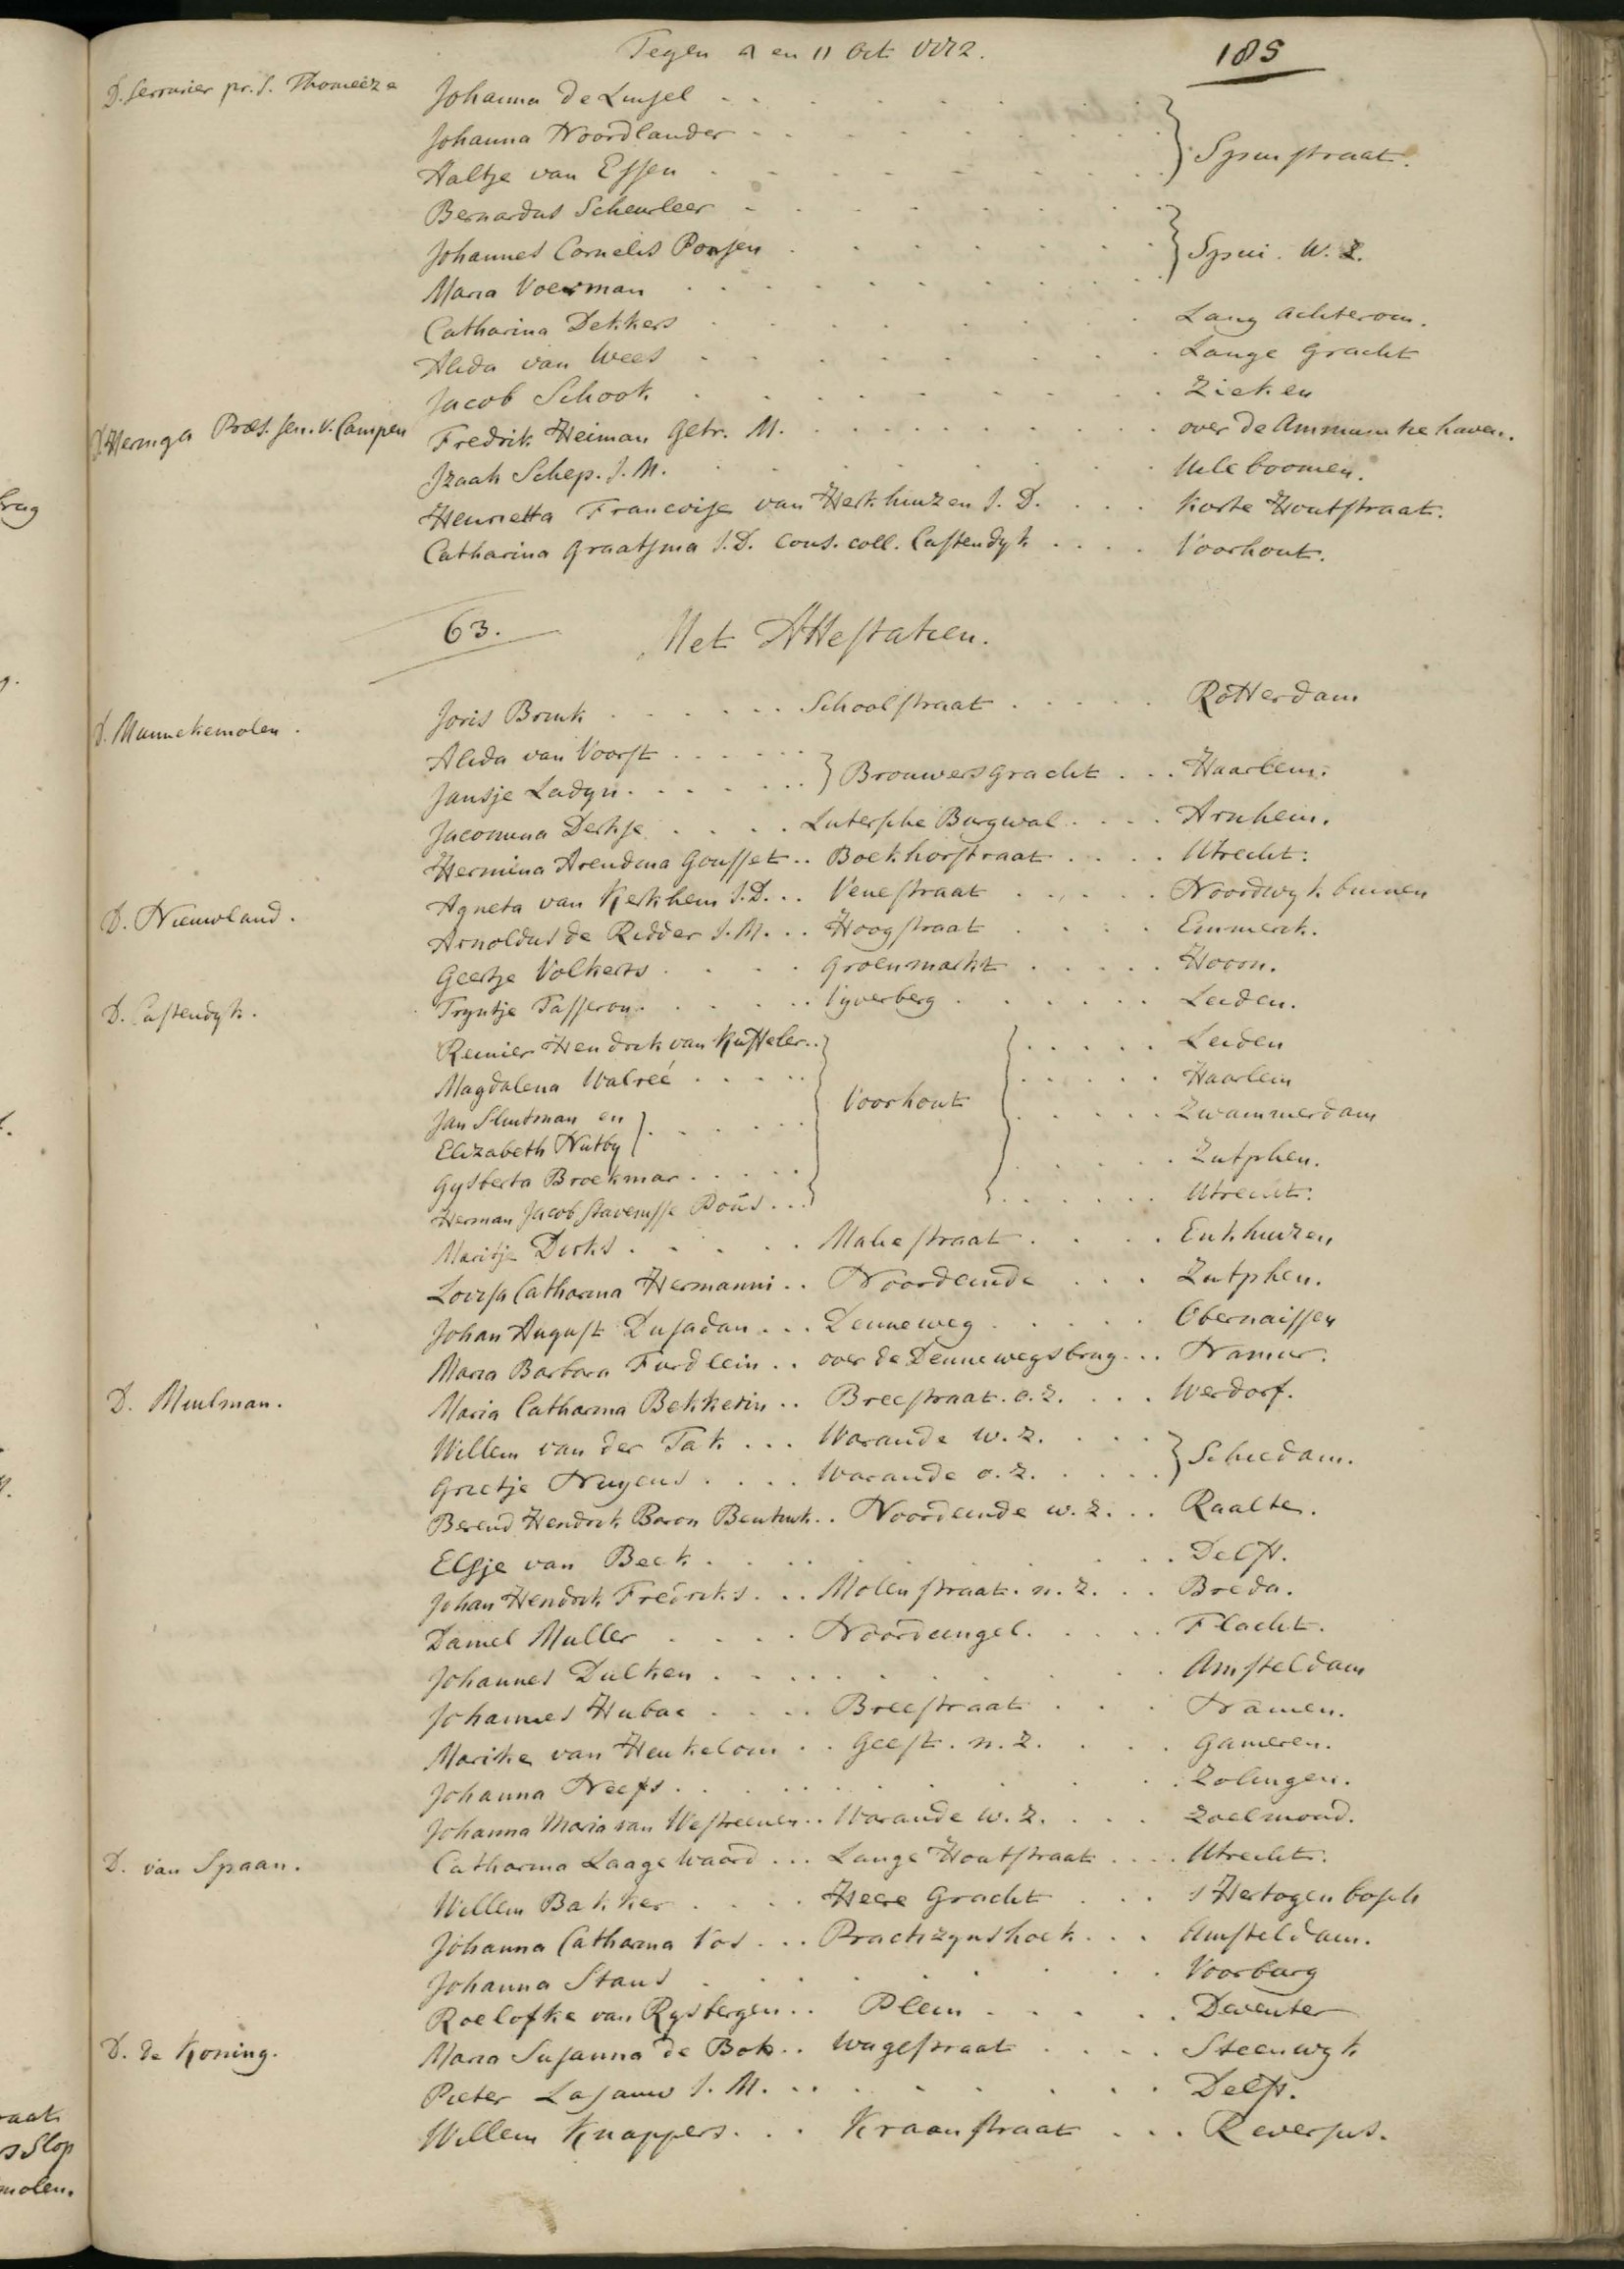 Tegen 9 en 11 Oct 1772. 185
D. Serrurier pr. S. Thomeeze Johanna de Linsel
Johanna Noordlander
Aaltje van Essen } Spuistraat.
Bernardus Scheurleer
Johannes Cornelis Ponsen } Spui. W. Z.
Maria Voerman
Catharina Dekkers Lang achterom.
Alida van Wees Lange gracht
Jacob Schook Zieken
D. Heringa Præs. sen. v. Campen Fredrik Heiman Getr. M. over de Ammunitie haven.
Izaak Schep. J. M. Uileboomen.
Henrietta Francoise van Herkhuizen J. D. Korte Houtstraat.
Catharina Graatsma J. D. Cons. coll. Castendyk Voorhout.
63. Met Attestatien.
Joris Brink Schoolstraat Rotterdam
D. Mannekemolen. Alida van Voorst
Jansje Ladyn } Brouwersgracht Haarlem.
Jacomina Derkse Lutersche Burgwal Arnhem.
Hermina Arendina Gousset Boekhorstraat Utrecht.
Agneta van Kerkhem J. D. Venestraat Noordwyk binnen
D. Nieuwland. Arnoldus de Ridder J. M. Hoogstraat Emmerik.
Geertje Volkerts Groenmarkt Hoorn.
D. Castendyk. Tryntje Tasseron Vyverberg Leiden.
Reinier Hendrik van Kuffeler Leiden
Magdalena Walreé Haarlem
Jan Slutman en Voorhout Zwammerdam
Elizabeth Nutby
Gysberta Broekmar Zutphen.
Herman Jacob Stavenisse Poüs Utrecht.
Maritje Dirks Maliestraat Enkhuizen
Lovisa Catharina Hermanni Noordeinde Zutphen.
Johan August Dusadan Denneweg Obernaissen
Maria Barbara Furdlein over de Dennewegsbrug Namur.
D. Meulman. Maria Catharina Bekkerin Breestraat. o. z. Werdorf.
Willem van der Tak Warande w. z.
Grietje Nuyens Warande o. z. } Schiedam.
Berend Hendrik Baron Bentink Noordeinde w. z. Raalte.
Elsje van Beek Delft.
Johan Hendrik Fredriks Molenstraat. n. z. Breda.
Daniel Muller Noordcingel Flacht.
Johannes Dulken Amsteldam
Johannes Hubac Breestraat Namen.
Marike van Heukelom Geest. n. z. Gameren.
Johanna Neefs Zolingen.
Johanna Maria van Westreenen Warande w. z. Zoelmond.
D. van Spaan. Catharina Laagewaard Lange Houtstraat Utrecht.
Willem Bakker Heere Gracht s Hertogenbosch
Johanna Catharina Vos Practizynshoek Amsteldam.
Johanna Stans Voorburg
Roelofke van Rysbergen Plein Deventer
D. de Koning. Maria Susanna de Bok Wagestraat Steenwyk
Pieter Lasauw J. M. Delft.
Willem Knappers Kraanstraat Reversus.